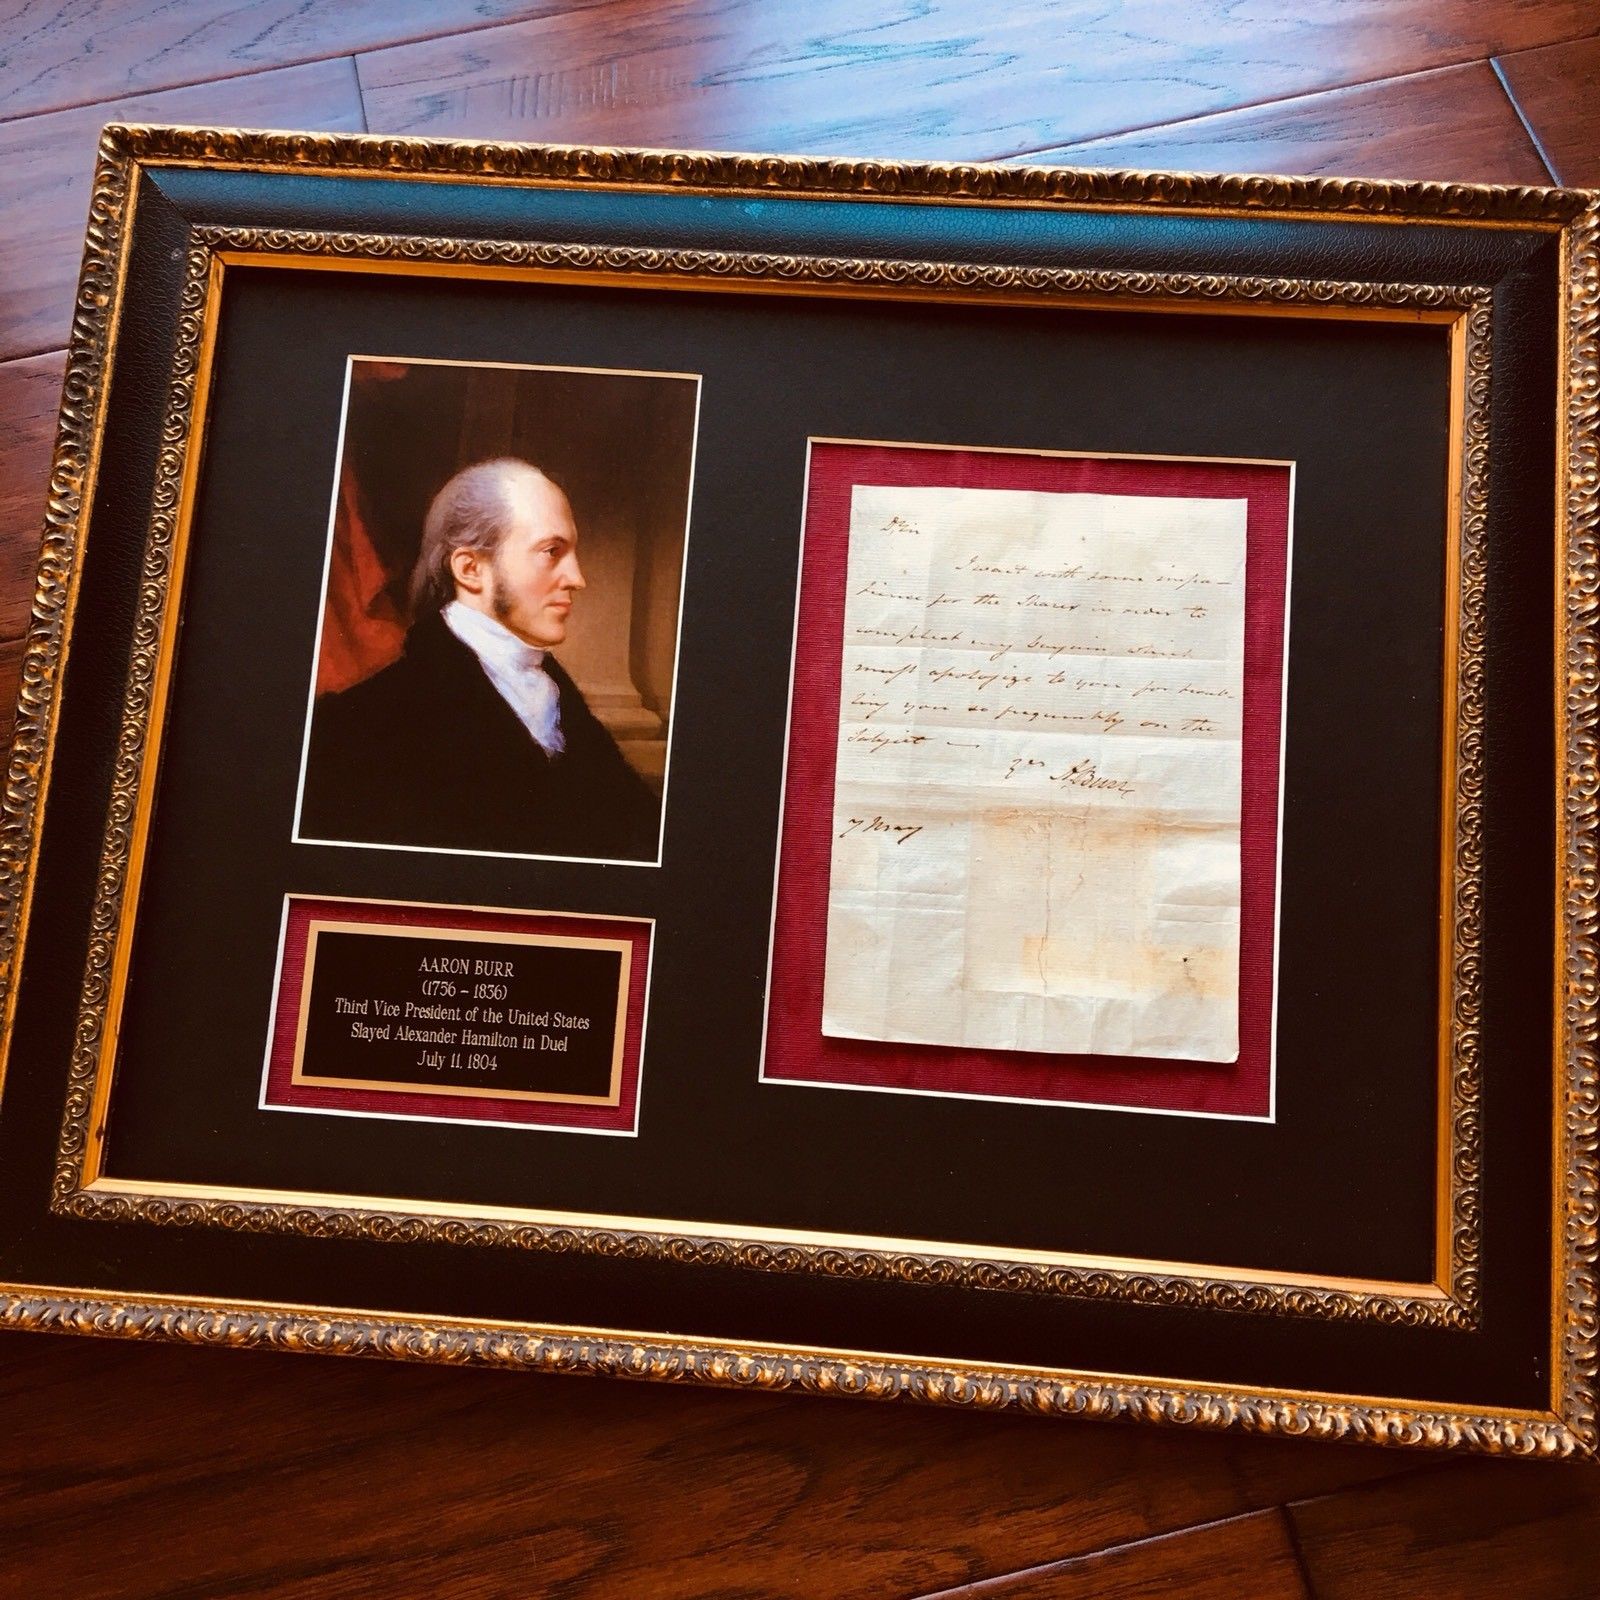 AARON BURR
(1756 – 1836)
Third Vice President of the United States
Slayed Alexander Hamilton in Duel
July 11, 1804
D Sir
I wait with some impa-
tience for the Shares in order to
compleat my
must apologize to you for troub-
ling you so frequently on the
Subject —
Yrs A Burr
7 May